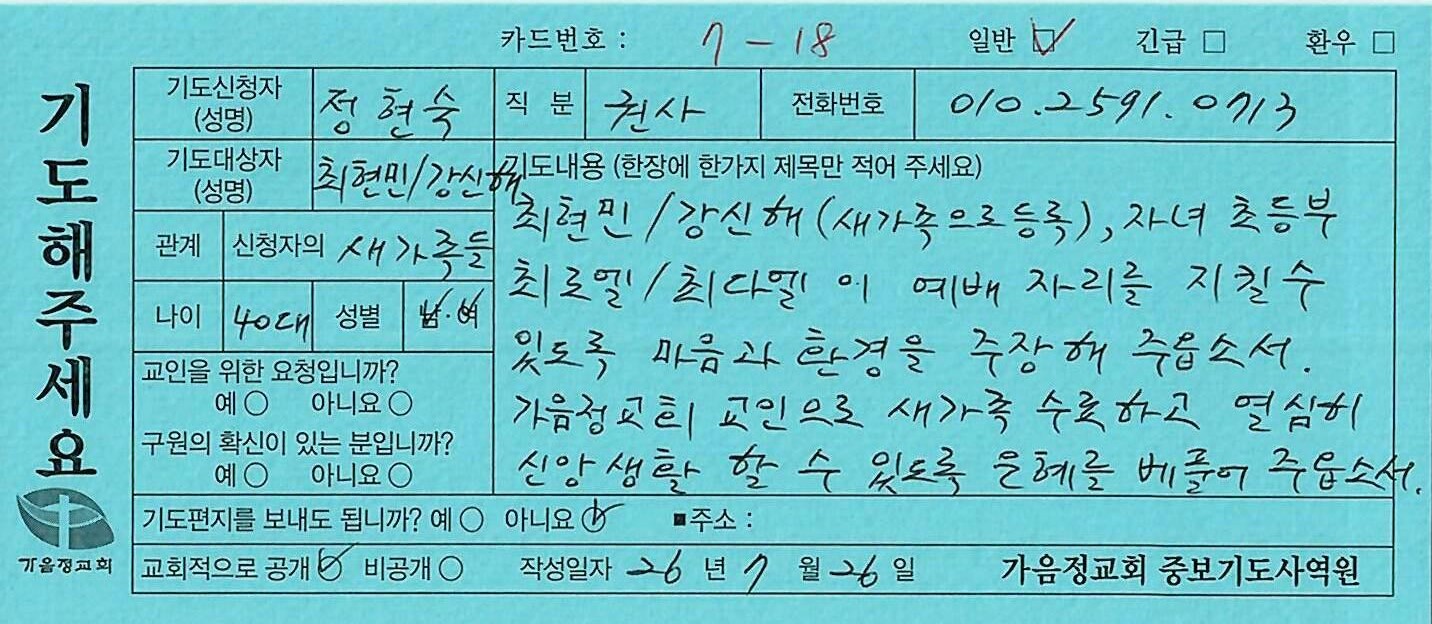 카드번호 : 7-18 일반 ☑ 긴급 □ 환우 □
기도해주세요
기도신청자 (성명) 정현숙 직 분 권사 전화번호 010.2591.0713
기도대상자 (성명) 최현민/강신해
관계 신청자의 새가족들
나이 40대 성별 남·여
교인을 위한 요청입니까?
예○ 아니요○
구원의 확신이 있는 분입니까?
예○ 아니요○
기도내용 (한장에 한가지 제목만 적어 주세요)
최현민/강신해(새가족으로등록), 자녀 초등부
최로엘/최다엘 이 예배 자리를 지킬수
있도록 마음과 환경을 주장해 주옵소서.
가음정교회 교인으로 새가족 수료하고 열심히
신앙생활 할 수 있도록 은혜를 베풀어 주옵소서.
기도편지를 보내도 됩니까? 예○ 아니요☑ ■주소 :
교회적으로 공개☑ 비공개○ 작성일자 26 년 7 월 26 일 가음정교회 중보기도사역원
가음정교회